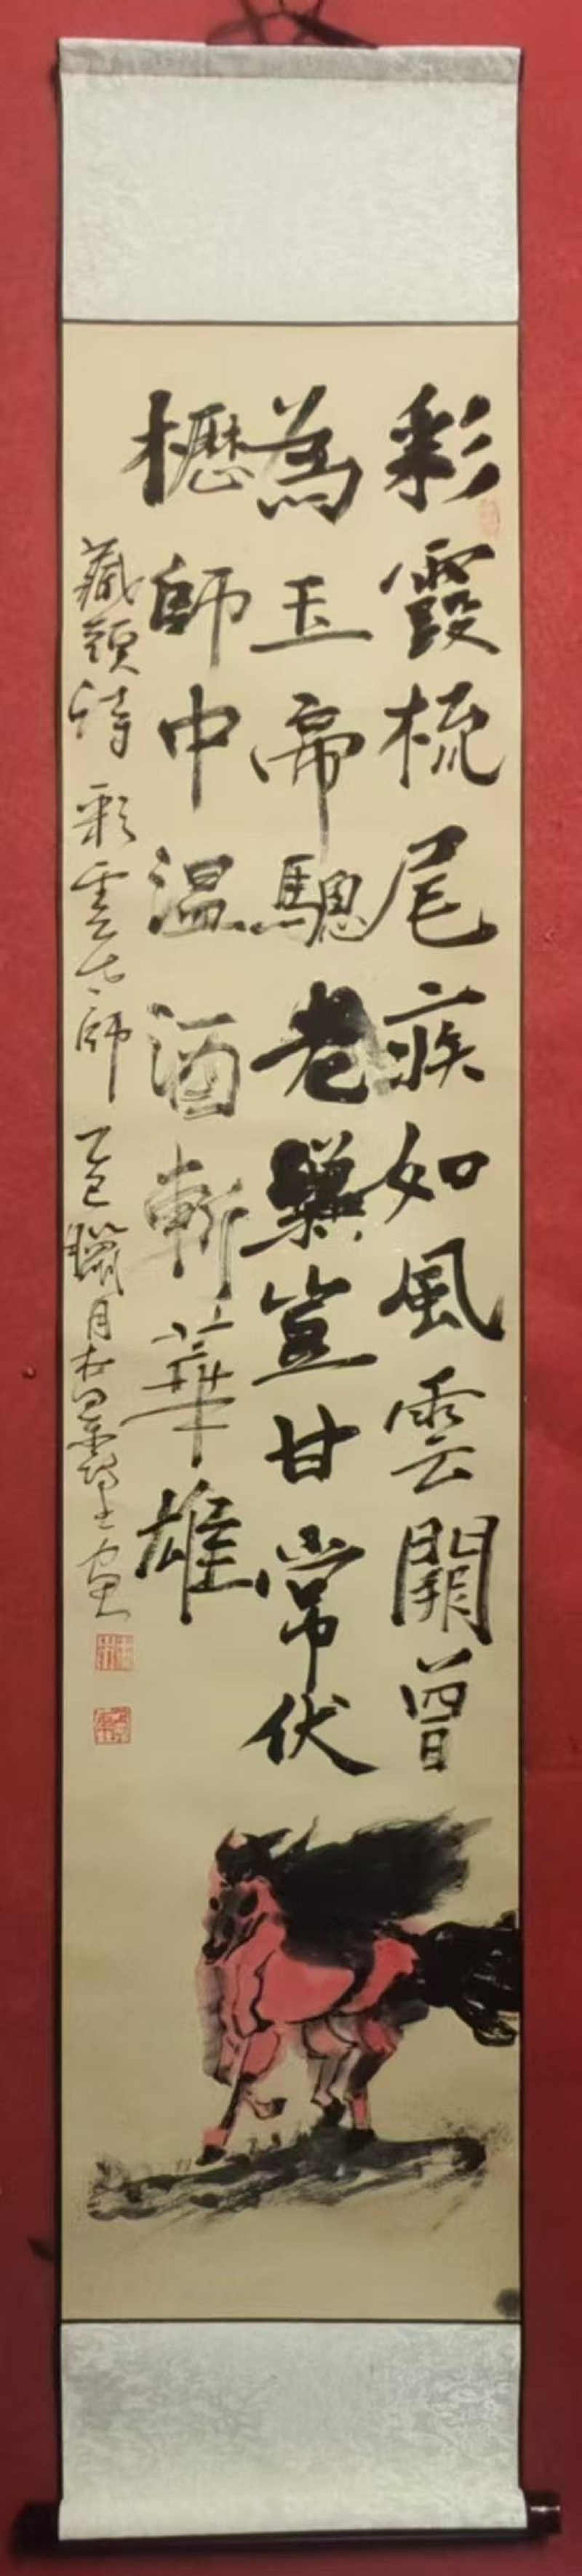 彩霞梳尾疾如風雲開曾
為玉帝驄老驥豈甘常伏
櫪師中温酒斬華雄
藏頭詩 彩雲古師 乙巳臘月